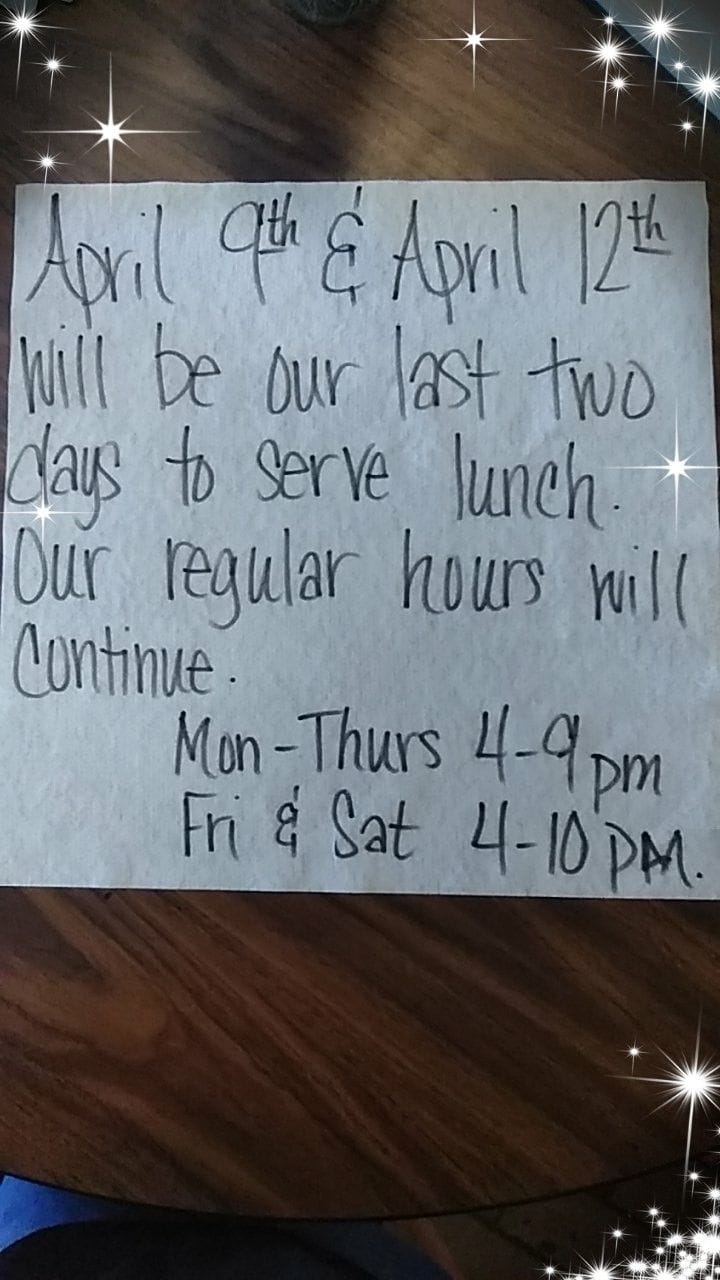 April 9th & April 12th
will be our last two
days to serve lunch.
Our regular hours will
Continue.
Mon-Thurs 4-9pm
Fri & Sat 4-10 PM.